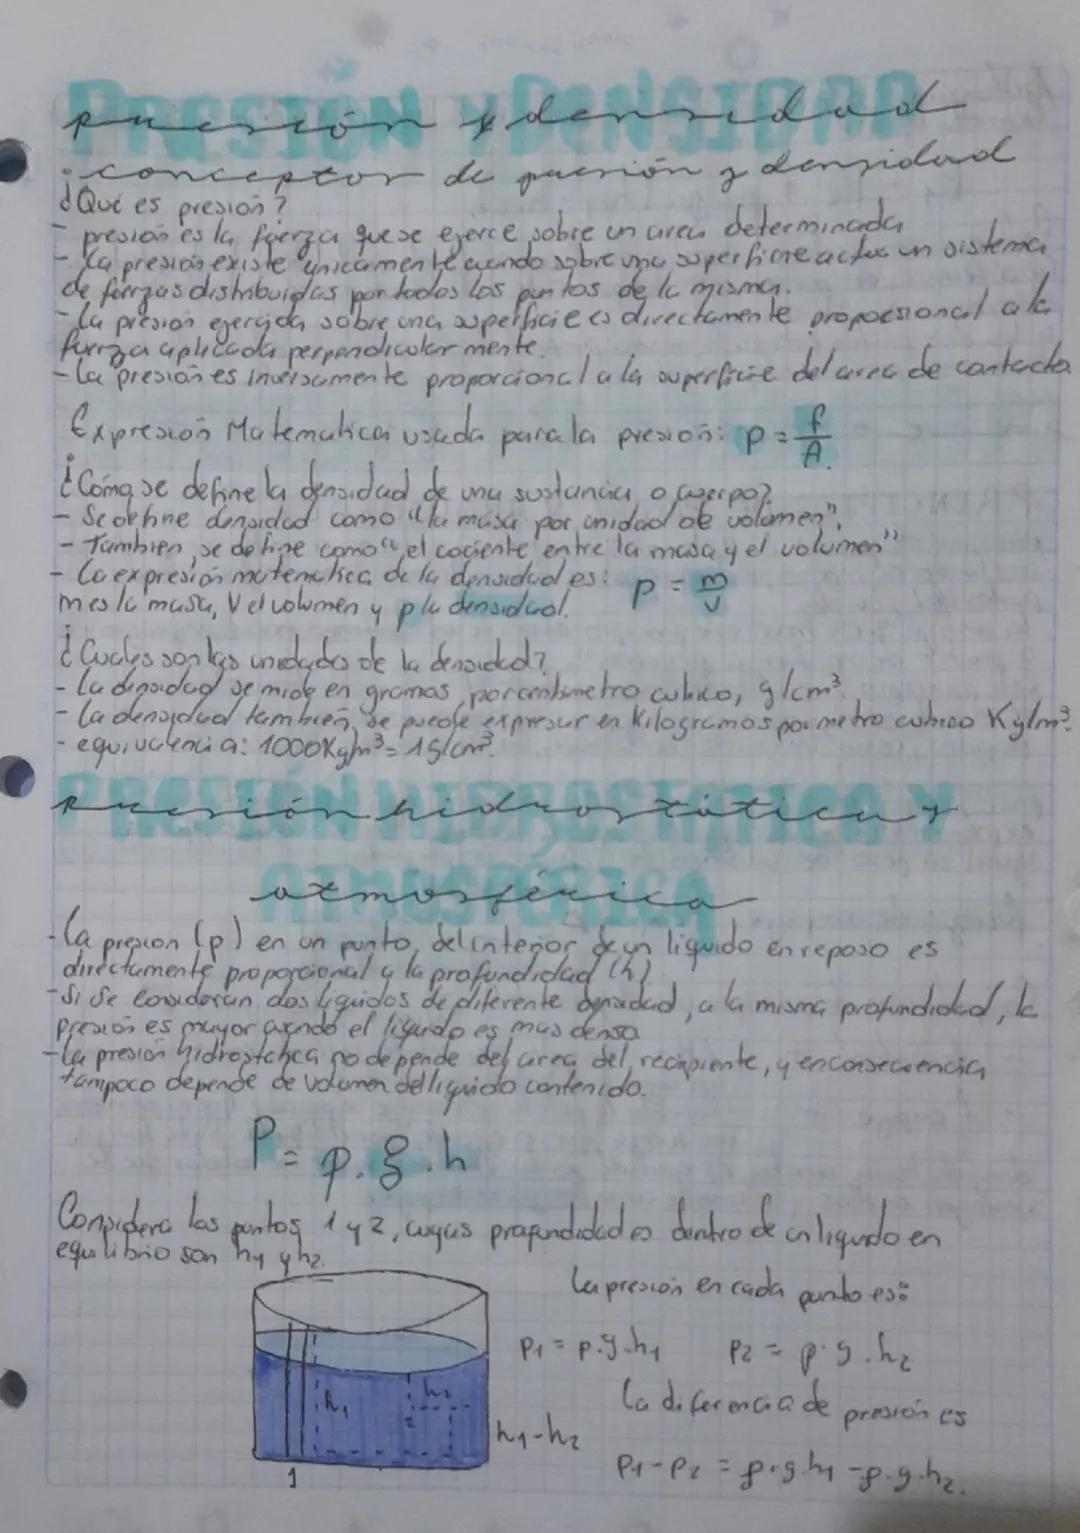 presión y densidad
conceptos de presión y densidad
¿Qué es presión?
- presión es la fuerza que se ejerce sobre un area determinada
- La presión existe unicamente cuando sobre una superficie actua un sistema
de fuerzas distribuidas por todos los puntos de la misma.
- La presión ejercida sobre una superficie es directamente proporsional a la
fuerza aplicada perpendicular mente.
- La presión es inversamente proporcional a la superficie del area de contacto.
Expresión Matematica usada para la presión: p = f/A.
¿Cómo se define la densidad de una sustancia o cuerpo?
- Se define densidad como "la masa por unidad de volumen".
- Tambien se define como "el cociente entre la masa y el volumen"
- La expresión matematica de la densidad es: p = m/v
m es la masa, V el volumen y p la densidad.
¿Cuales son las unidades de la densidad?
- La densidad se mide en gramos por centimetro cubico, g/cm³.
- La densidad tambien se puede expresar en Kilogramos por metro cubico Kg/m³.
- equivalencia: 1000Kg/m³ = 1g/cm³.
presión hidrostática y
atmosférica
- La presion (p) en un punto del interior de un liquido en reposo es
directamente proporcional a la profundidad (h)
- Si se consideran dos liquidos de diferente densidad, a la misma profundidad, la
presión es mayor cuando el liquido es mas denso
- La presión hidrostatica no depende del area del recipiente, y en consecuencia
tampoco depende de volumen del liquido contenido.
P = p . g . h
Considera los puntos 1 y 2, cuyas profundidades dentro de un liquido en
equilibrio son h1 y h2.
La presión en cada punto es:
P1 = p.g.h1 P2 = p.g.h2
La diferencia de presión es
P1-P2 = p.g.h1 - p.g.h2.
h1 h2
2
h1-h2
1